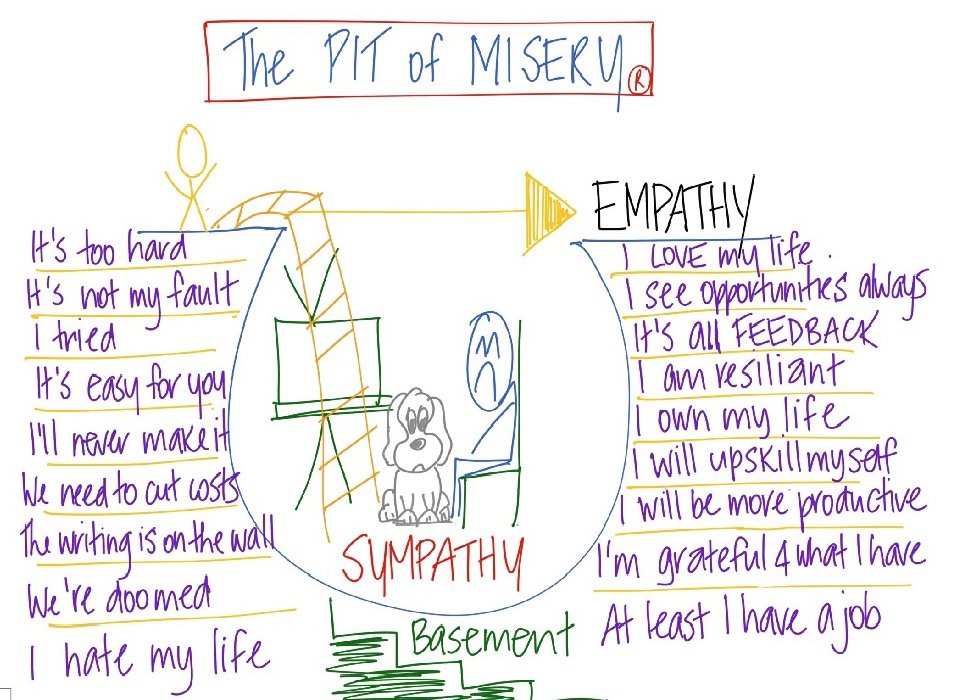 The PIT of MISERY ®
EMPATHY
It's too hard
It's not my fault
I tried
It's easy for you
I'll never make it
We need to cut costs
The writing is on the wall
We're doomed
I hate my life
I LOVE my life.
I see opportunities always
It's all FEEDBACK
I am resiliant
I own my life
I will upskill myself
I will be more productive
I'm grateful 4 what I have
At least I have a job
SYMPATHY
Basement